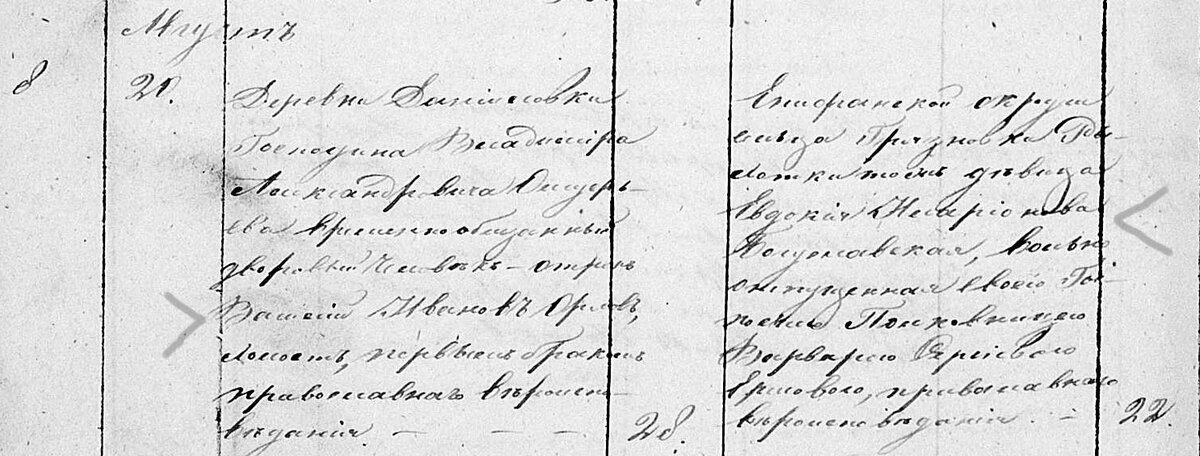 Августъ
8
20.
Деревни Даниловки
Господина Владиміра
Александровича
ва временнообязанный
дворовый человѣкъ – отрокъ
Василій Ивановъ Орловъ,
холостъ, первымъ бракомъ
православнаго вѣроиспо-
вѣданія — — —
28.
Епифанской округи
сельца Грязновки
дѣвица
Евдокія Иларіонова
вольно
отпущенная своею Гос-
пожею Полковницею
Варварою
Ершовою, православнаго
вѣроисповѣданія. —
22.